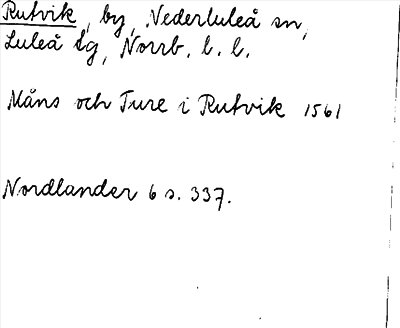 Rutvik, by, Nederluleå sn,
Luleå tg, Norrb. l. l.
Måns och Ture i Rutvik 1561
Nordlander 6 s. 337.